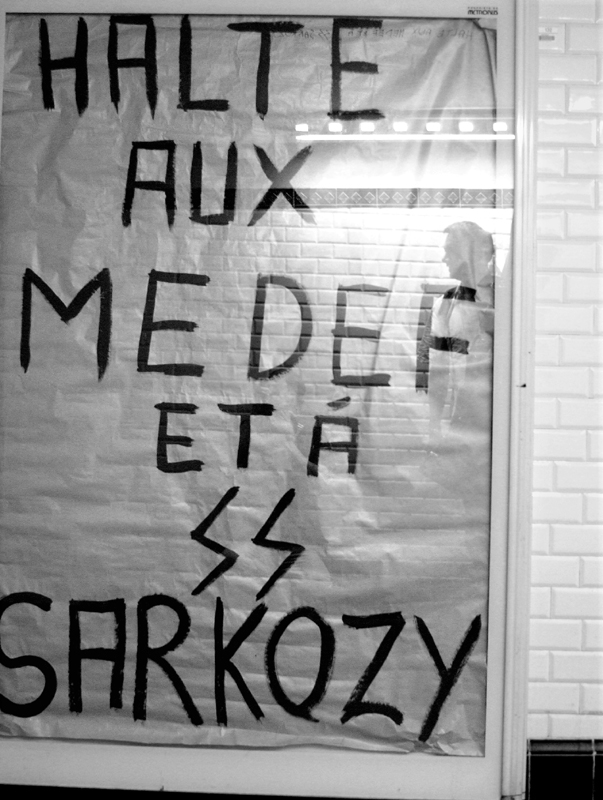 METROBUS
HALTE
AUX
MEDEF
ET À
SS
SARKOZY